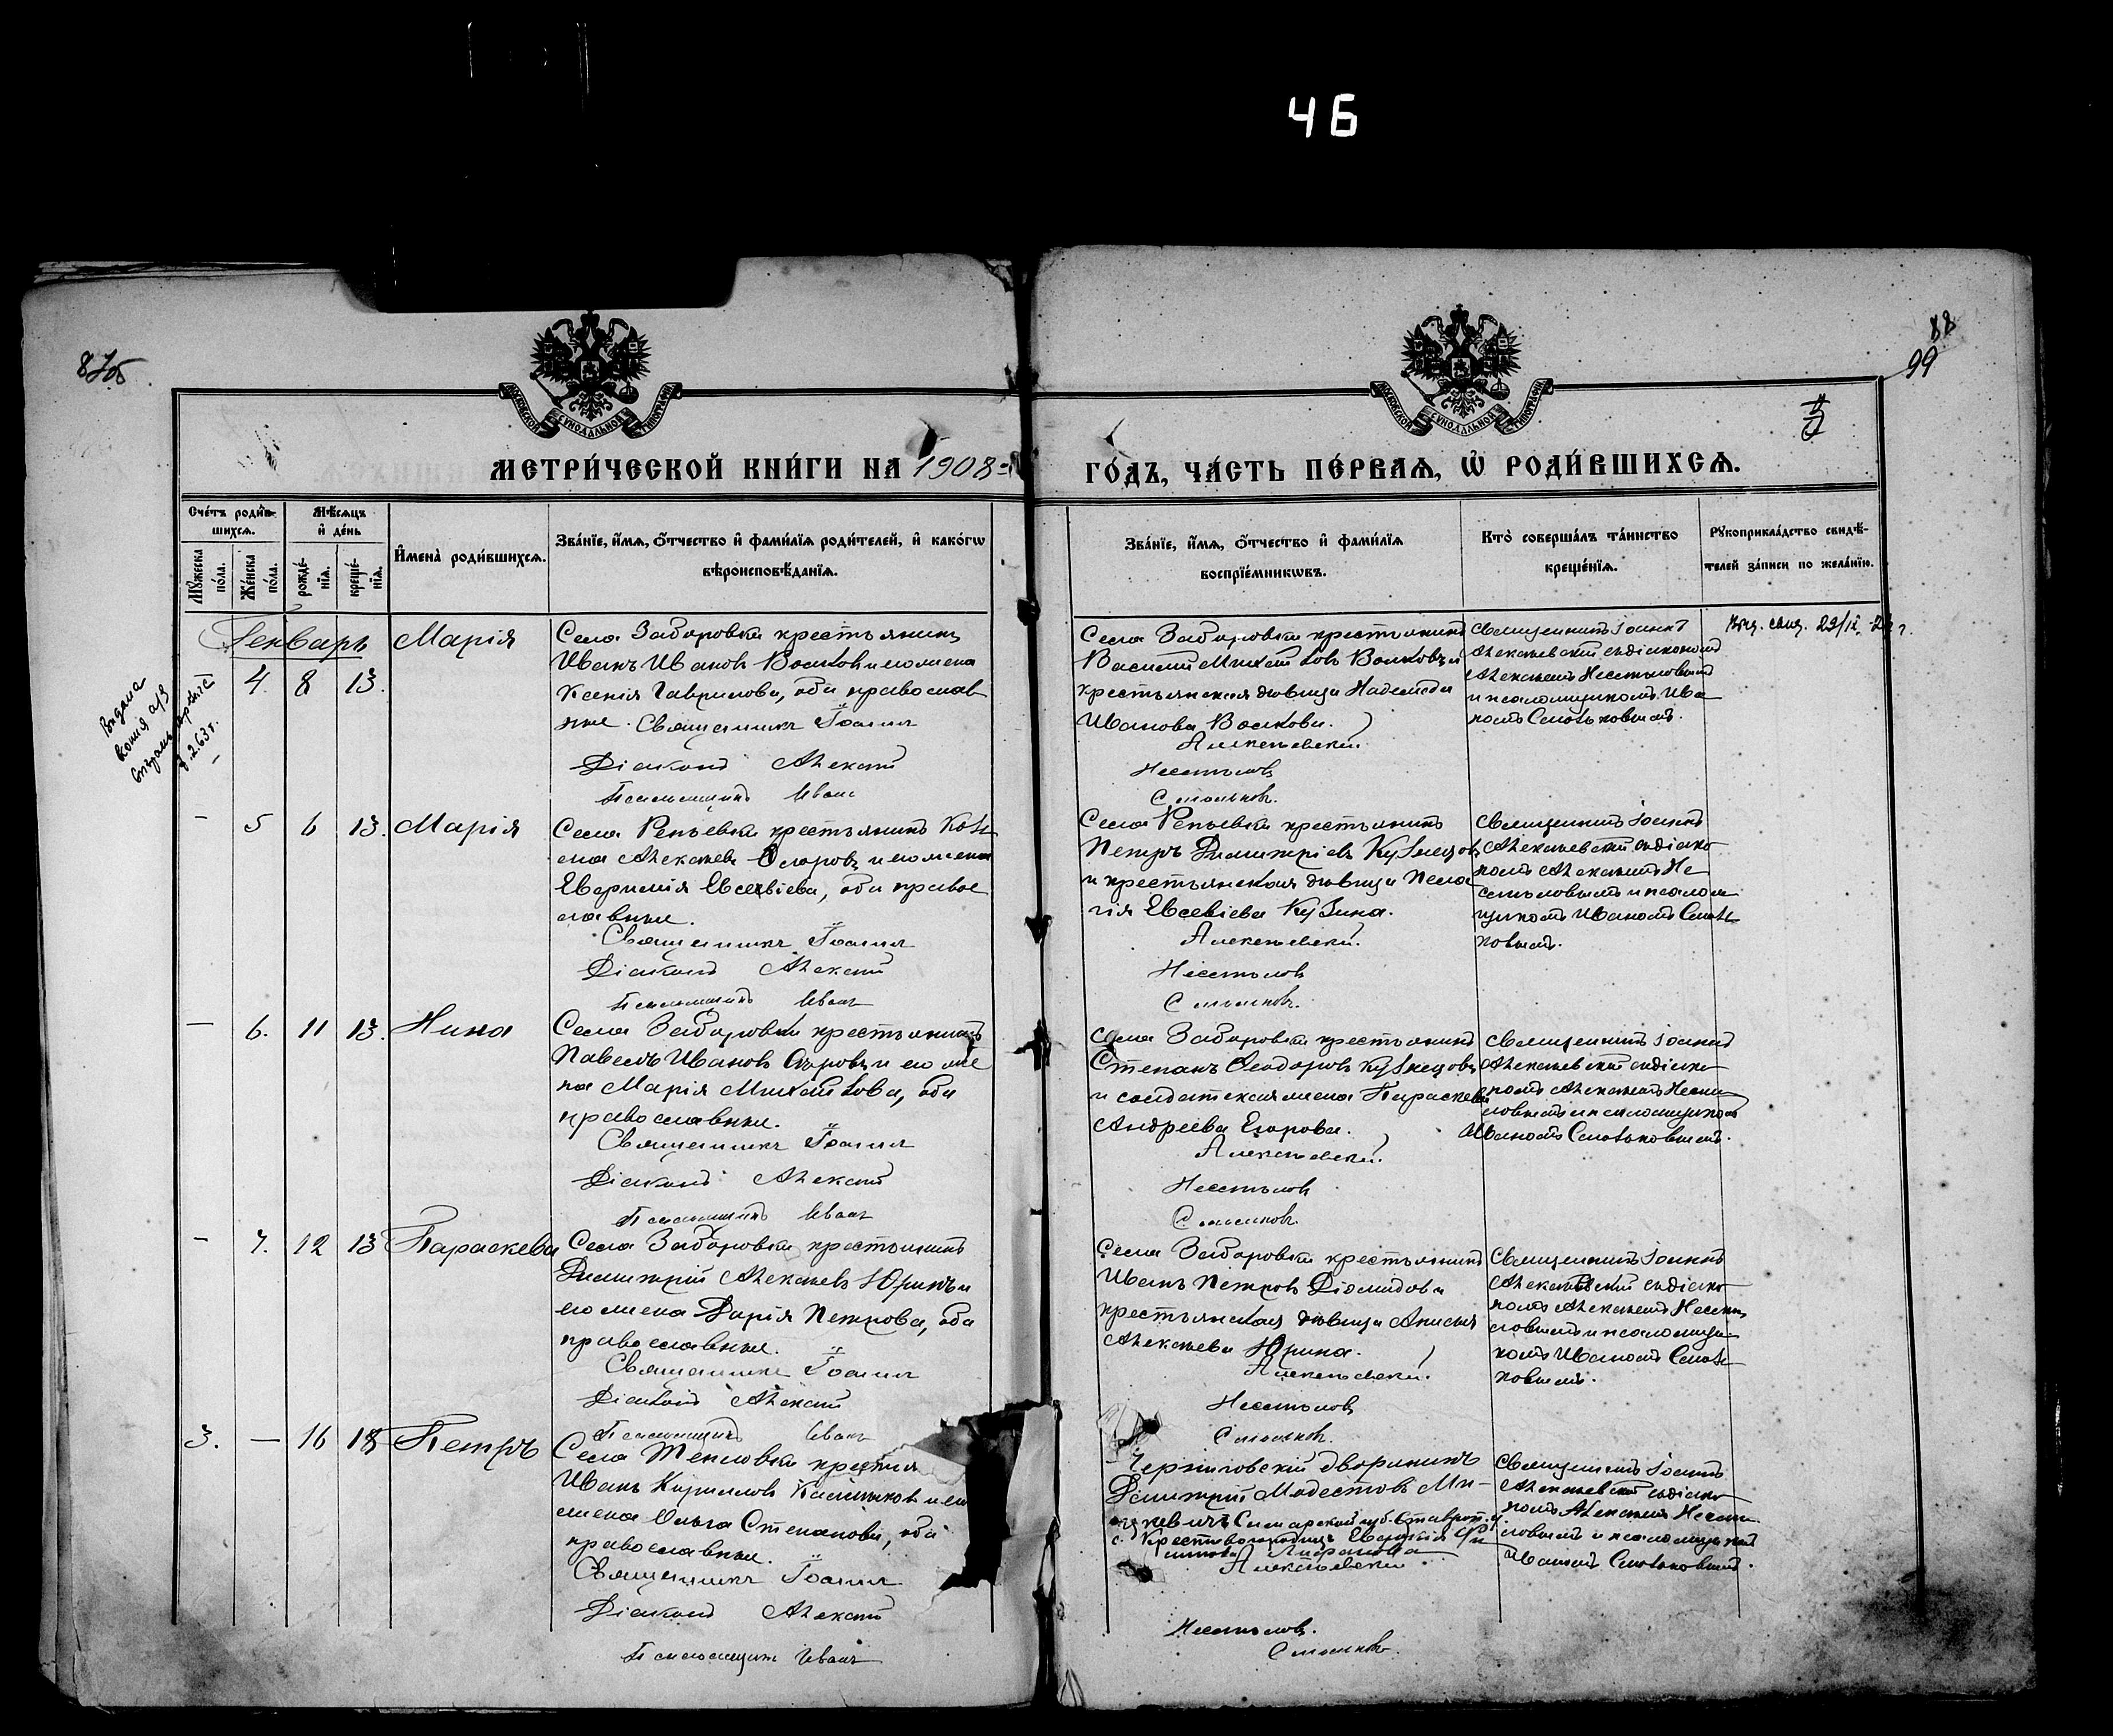 46
88
99
МЕТРИ́ЧЕСКОЙ КНИ́ГИ НА 1908
ГО́ДЪ, ЧА́СТЬ ПЕ́РВАѦ, Ѡ҆ РОДИ́ВШИХСѦ.
МОСКОВСКОЙ СѴНОДАЛЬНОЙ ТИПОГРАФІИ
МОСКОВСКОЙ СѴНОДАЛЬНОЙ ТИПОГРАФІИ
Сче́тъ роди́в-
шихсѧ.
Мꙋжеска по́ла.
Же́нска по́ла.
Мѣ́сѧцъ
и҆ де́нь
рожде́-
нїѧ.
креще́-
нїѧ.
И҆мена̀ роди́вшихсѧ.
Зва́нїе, и҆́мѧ, ѻ҆́тчество и҆ фами́лїѧ роди́телей, и҆ како́гѡ
вѣроисповѣ́данїѧ.
Зва́нїе, и҆́мѧ, ѻ҆́тчество и҆ фами́лїѧ
воспрїе́мникѡвъ.
Кто̀ соверша́лъ та́инство
креще́нїѧ.
Рꙋкоприкла́дство свидѣ́-
телей за́писи по жела́нїю.
Генварь
4. 8 13. Марія
Села Заборовки крестьянинъ
Иванъ Ивановъ Волковъ и его жена
Ксенія Гаврилова, оба православ
ные. Священникъ Іоаннъ
Діаконъ Алексѣй
Псаломщикъ Иванъ
Села Заборовки крестьянинъ
Василій Михайловъ Волковъ и
крестьянская дѣвица Надежда
Иванова Волкова.
Алексѣевскій.
Нестеловъ
Смольковъ.
Священникъ Іоаннъ
Алексѣевскій съ діакономъ
Алексѣемъ Нестеловымъ
и псаломщикомъ Ива
номъ Смольковымъ.
— 5 6 13. Марія
Села Репьевки крестьянинъ
Алексѣевъ Егоровъ и его жена
Евфимія Евсевіева, оба право
славные.
Священникъ Іоаннъ
Діаконъ Алексѣй
Псаломщикъ Иванъ
Села Репьевки крестьянинъ
Петръ Димитріевъ Кузнецовъ
и крестьянская дѣвица Пела
гія Евсевіева Кузина.
Алексѣевскій.
Нестеловъ
Смольковъ.
Священникъ Іоаннъ
Алексѣевскій съ діако
номъ Алексѣемъ Не
стеловымъ и псалом
щикомъ Иваномъ Смоль
ковымъ.
— 6. 11 13. Нина
Села Заборовки крестьянинъ
Павелъ Ивановъ Егоровъ и его же
на Марія Михайлова, оба
православные.
Священникъ Іоаннъ
Діаконъ Алексѣй
Псаломщикъ Иванъ
Села Заборовки крестьянинъ
Степанъ Ѳеодоровъ Кузнецовъ
и солдатская жена Параскева
Андреева Егорова.
Алексѣевскій.
Нестеловъ
Смольковъ.
Священникъ Іоаннъ
Алексѣевскій съ діако
номъ Алексѣемъ Несте
ловымъ и псаломщикомъ
Иваномъ Смольковымъ.
— 7. 12 13 Параскева
Села Заборовки крестьянинъ
Димитрій Алексѣевъ Юринъ и
его жена Дарія Петрова, оба
православные.
Священникъ Іоаннъ
Діаконъ Алексѣй
Псаломщикъ Иванъ
Села Заборовки крестьянинъ
Иванъ Петровъ Діомидовъ и
крестьянская дѣвица Анисья
Алексѣева Юрина.
Алексѣевскій.
Нестеловъ
Смольковъ.
Священникъ Іоаннъ
Алексѣевскій съ діако
номъ Алексѣемъ Несте
ловымъ и псаломщи
комъ Иваномъ Смоль
ковымъ.
3. — 16 18 Петръ
Села Тепловки
Иванъ Кирилловъ и его
жена Ольга Степанова, оба
православные.
Священникъ Іоаннъ
Діаконъ Алексѣй
Псаломщикъ Иванъ
Черниговскій дворянинъ
Димитрій Модестовъ Ми-
Самарской губ. Ставроп. у.
с. Крестовогородищъ Евдокія
Алексѣевскій
Нестеловъ.
Смольковъ.
Священникъ Іоаннъ
Алексѣевскій съ діако
номъ Алексѣемъ Несте
ловымъ и псаломщикомъ
Иваномъ Смольковымъ.